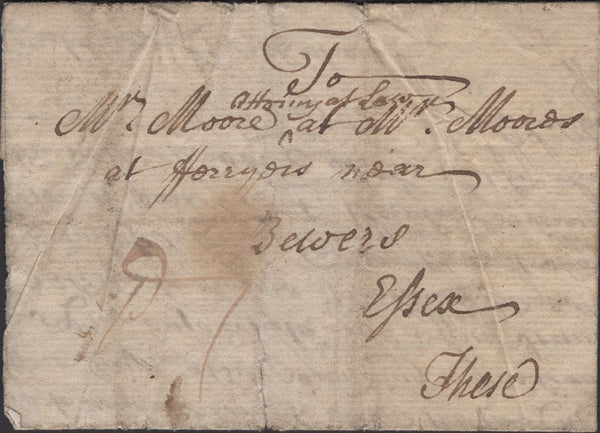 To
Attorny at Law
Mr. Moore at Mr. Moores
at Ferryers near
Bewers
Essex
These